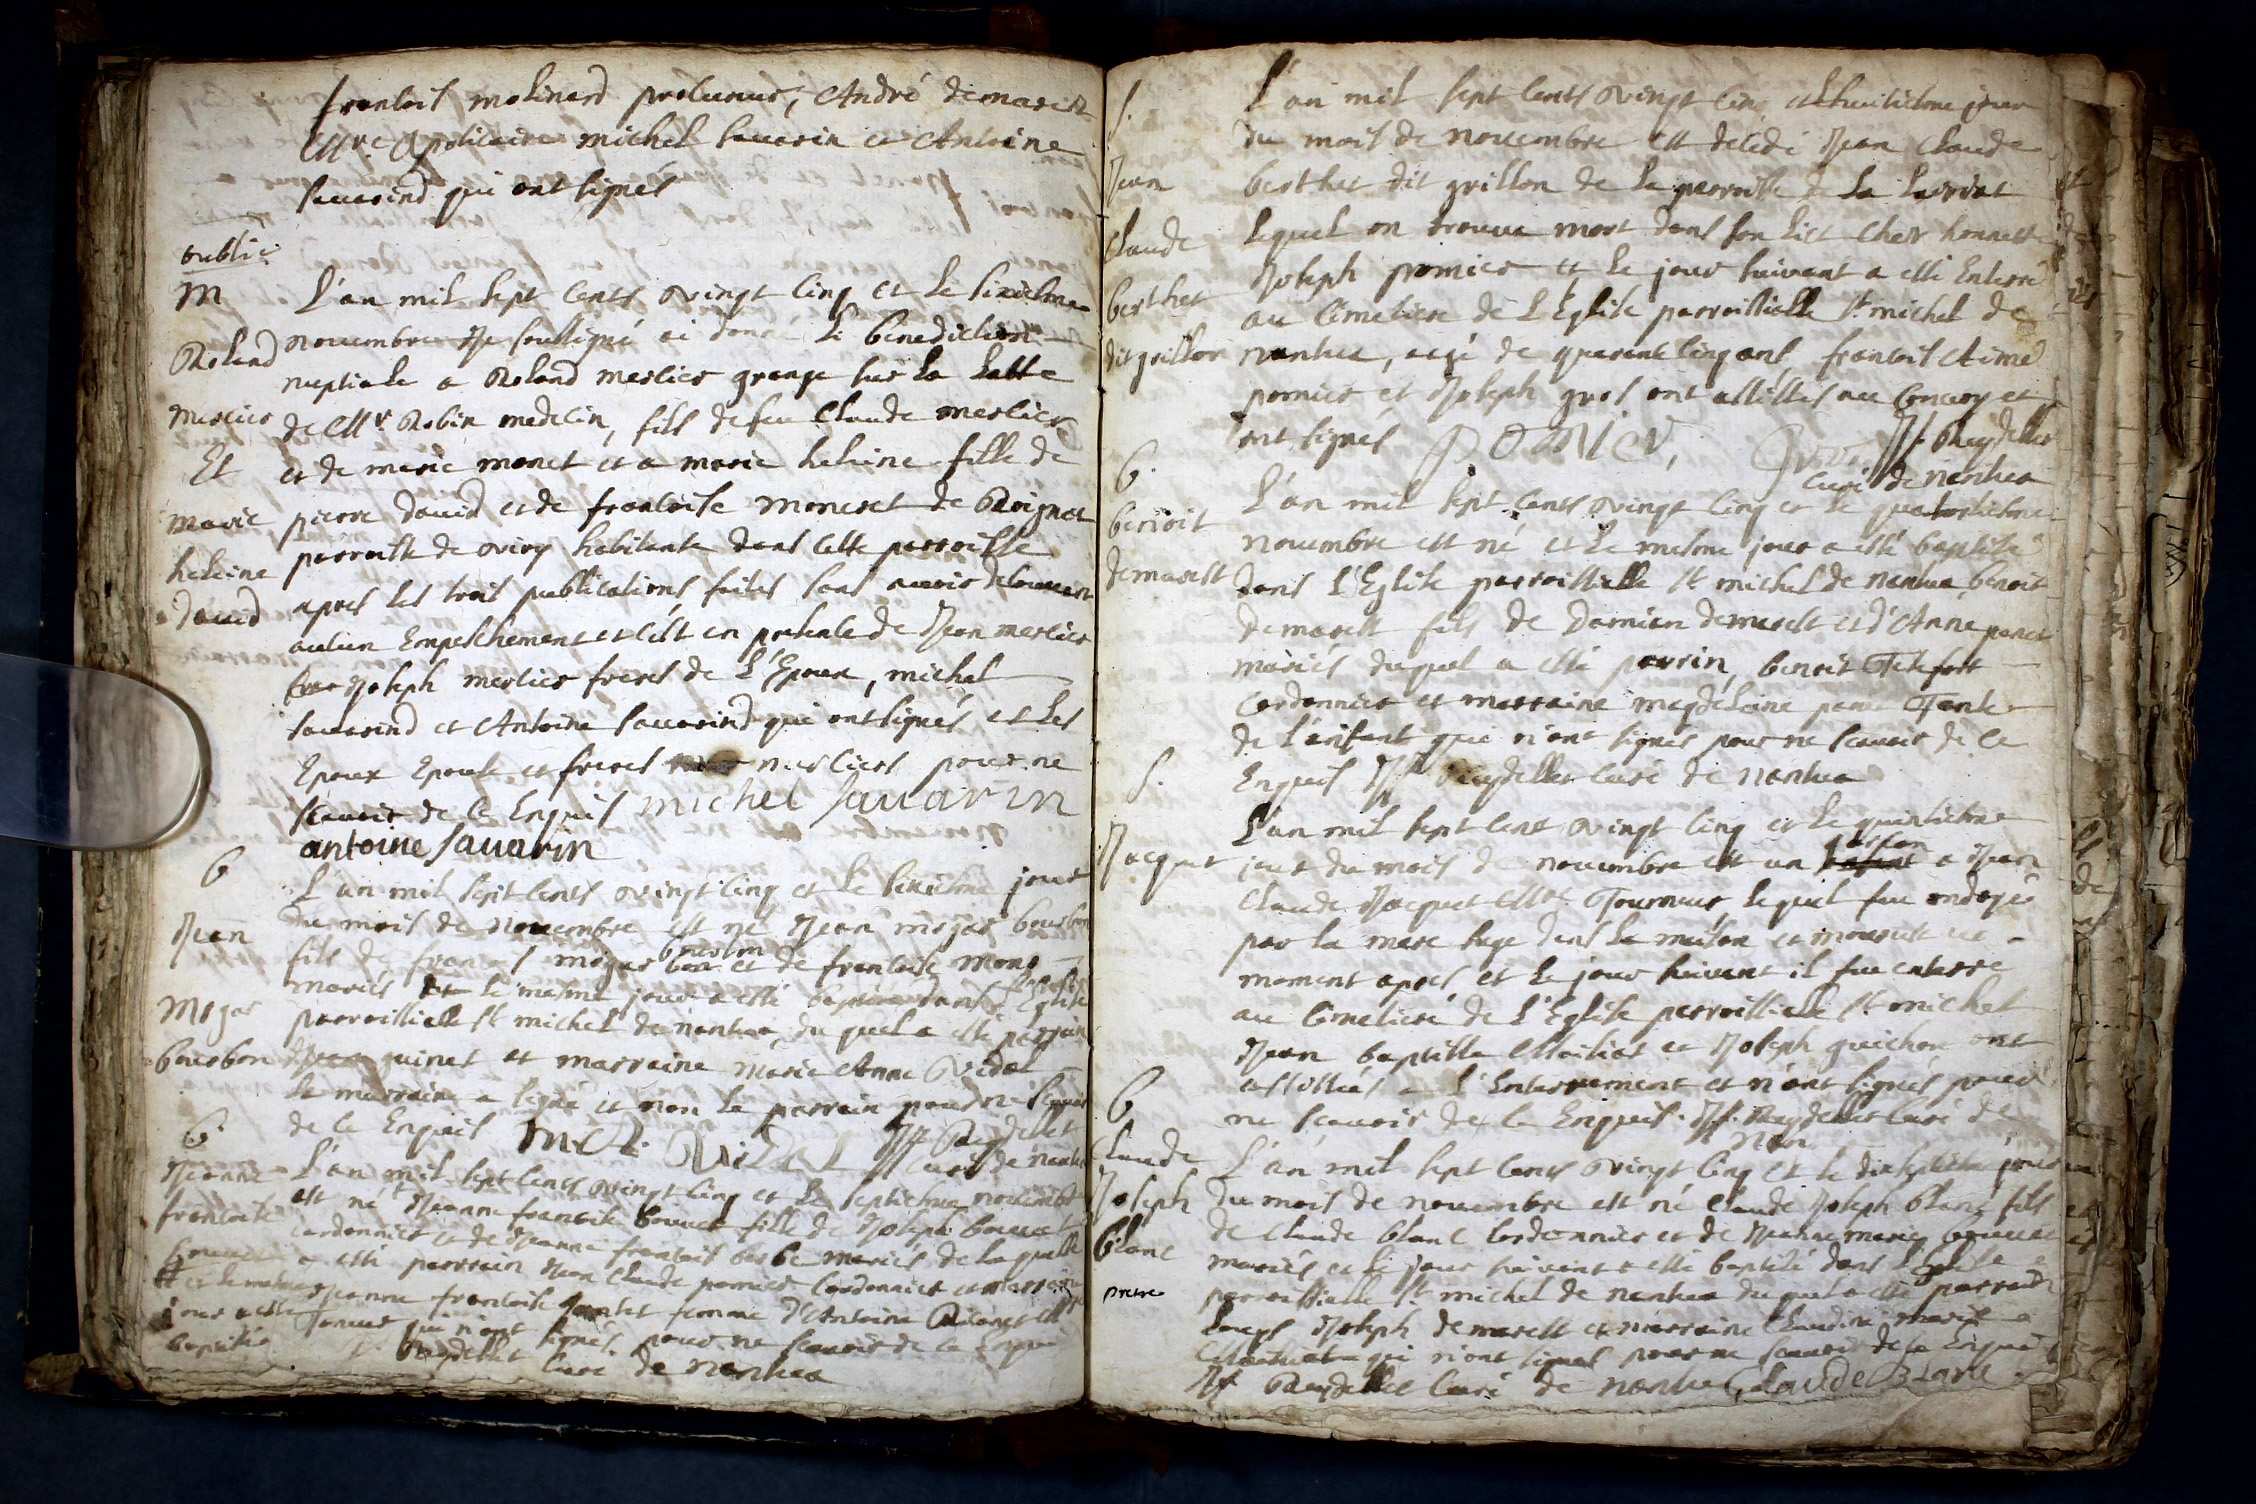 francois molinard procureur, André demarest
Mre Apoticaire michel sauarin et Antoine
sauarind qui ont signés
oublié
M
Roland
merlier
Et
marie
heleine
dauid
L'an mil sept cents vingt cinq et le sixiesme
nouembre Je soussigné ai donné la benediction
nuptiale a Roland merlier grange sur la
de Mr Robin medecin, fils de feu Claude merlier
et de marie monet et a marie heleine fille de
pierre dauid et de francoise moneret de
parroisse de viry habitante dans cette parroisse
apres les trois publications faites sans auoir decouuert
aucun Empeschement et c'est en presence de Jean merlier
Joseph merlier freres de L'Epoux, michel
sauarind et Antoine sauarind qui ont signés et les
Epoux Epouse et freres merliers pour ne
scauoir de ce Enquis michel sauarin
antoine sauarin
B
Jean
Mogas
bourbon
L'an mil sept cents vingt cinq et le sixiesme jour
du mois de nouembre est né Jean mogas bourbon
fils de francois mogas bourbon et de francoise mona
mariés et le mesme jour a esté baptisé dans l'Eglise
parroissielle st michel de nantua, du quel a esté parrain
guinet et marraine marie Anne Vidal
la marraine a signé et non le parrain pour ne scauoir
de ce Enquis M A Vidal Jf Reydellet
curé de nantua
B
Jeanne
francoise
bouuet
et le mesme
jour a esté
baptisée
L'an mil sept cents vingt cinq et le septiesme nouembre
est né Jeanne francoise bouuet fille de Joseph bouuet
cordonnier et de Jeanne francoise mariés de laquelle
a esté parrain Jean Claude pornier Cordonnier et marraine
Jeanne francoise femme d'Antoine
qui n'ont signés pour ne scauoir de ce Enquis
Reydellet curé de nantua
S.
Jean
Claude
berthet
dit grillon
L'an mil sept cents vingt cinq et huitiesme jour
du mois de nouembre est decedé Jean Claude
berthet dit grillon de la parroisse de la
lequel on trouue mort dans son lict Chez honneste
Joseph pornier et le jour suiuant a esté Enterré
au Cimetiere de L'Eglise parroissielle st michel de
nantua, agé de quarante cinq ans, francois Aimé
pornier et Joseph gros ont assistés au Conuoy et
ont signés Pornier, Gros Jf Reydellet
curé de nantua
B
benoit
demarest
L'an mil sept cents vingt cinq et le quatorziesme
nouembre est né et le mesme jour a esté baptisé
dans L'Eglise parroissielle st michel de nantua, benoit
demarest fils de Damien demarest et d'Anne
mariés duquel a esté parrin, benoit
cordonnier et marraine magdeleine Tante
de l'enfant qui n'ont signés pour ne scauoir de ce
Enquis Jf Reydellet curé de nantua
S.
Jacquet
L'an mil sept cent vingt cinq et le quinziesme
jour du mois de nouembre est un garcon a Jean
Claude Jacquet Mre Tourneur, lequel fut ondoyé
par la mere sage dans la maison et mourut un
moment apres et le jour suiuant il fut enterré
au Cimetiere de L'Eglise parroissielle st michel
Jean baptiste et Joseph guichon ont
assistés a L'Enterrement et n'ont signés pour
ne scauoir de ce Enquis. Jf. Reydellet curé de
Nan
B
Claude
Joseph
blanc
pretre
L'an mil sept cents vingt cinq et le dixseptiesme jour
du mois de nouembre est né Claude Joseph blanc fils
de Claude blanc Cordonnier et de marie bouuet
mariés et le jour suiuant a esté baptisé dans L'Eglise
parroissielle st. michel de nantua duquel a esté parrain
Joseph demarest et marraine Claudine marie
qui n'ont signés pour ne scauoir de ce Enquis
Jf Reydellet Curé de nantua, Claude Blanc